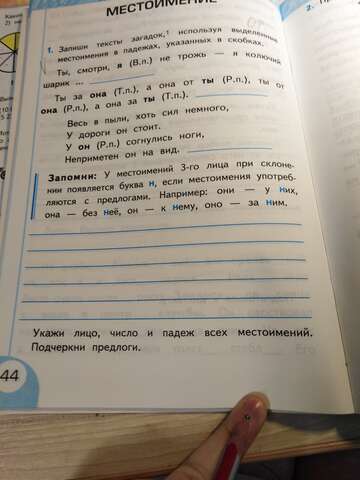 МЕСТОИМЕНИЕ
1. Запиши тексты загадок, используя выделенные
местоимения в падежах, указанных в скобках.
Ты, смотри, я (В.п.) не трожь — я колючий
шарик ...
Ты за она (Т.п.), а она от ты (Р.п.), ты от
она (Р.п.), а она за ты (Т.п.).
Весь в пыли, хоть сил немного,
У дороги он стоит.
У он (Р.п.) согнулись ноги,
Неприметен он на вид.
Запомни: У местоимений 3-го лица при склоне-
нии появляется буква н, если местоимения употреб-
ляются с предлогами. Например: они — у них,
она — без неё, он — к нему, оно — за ним.
Укажи лицо, число и падеж всех местоимений.
Подчеркни предлоги.
44